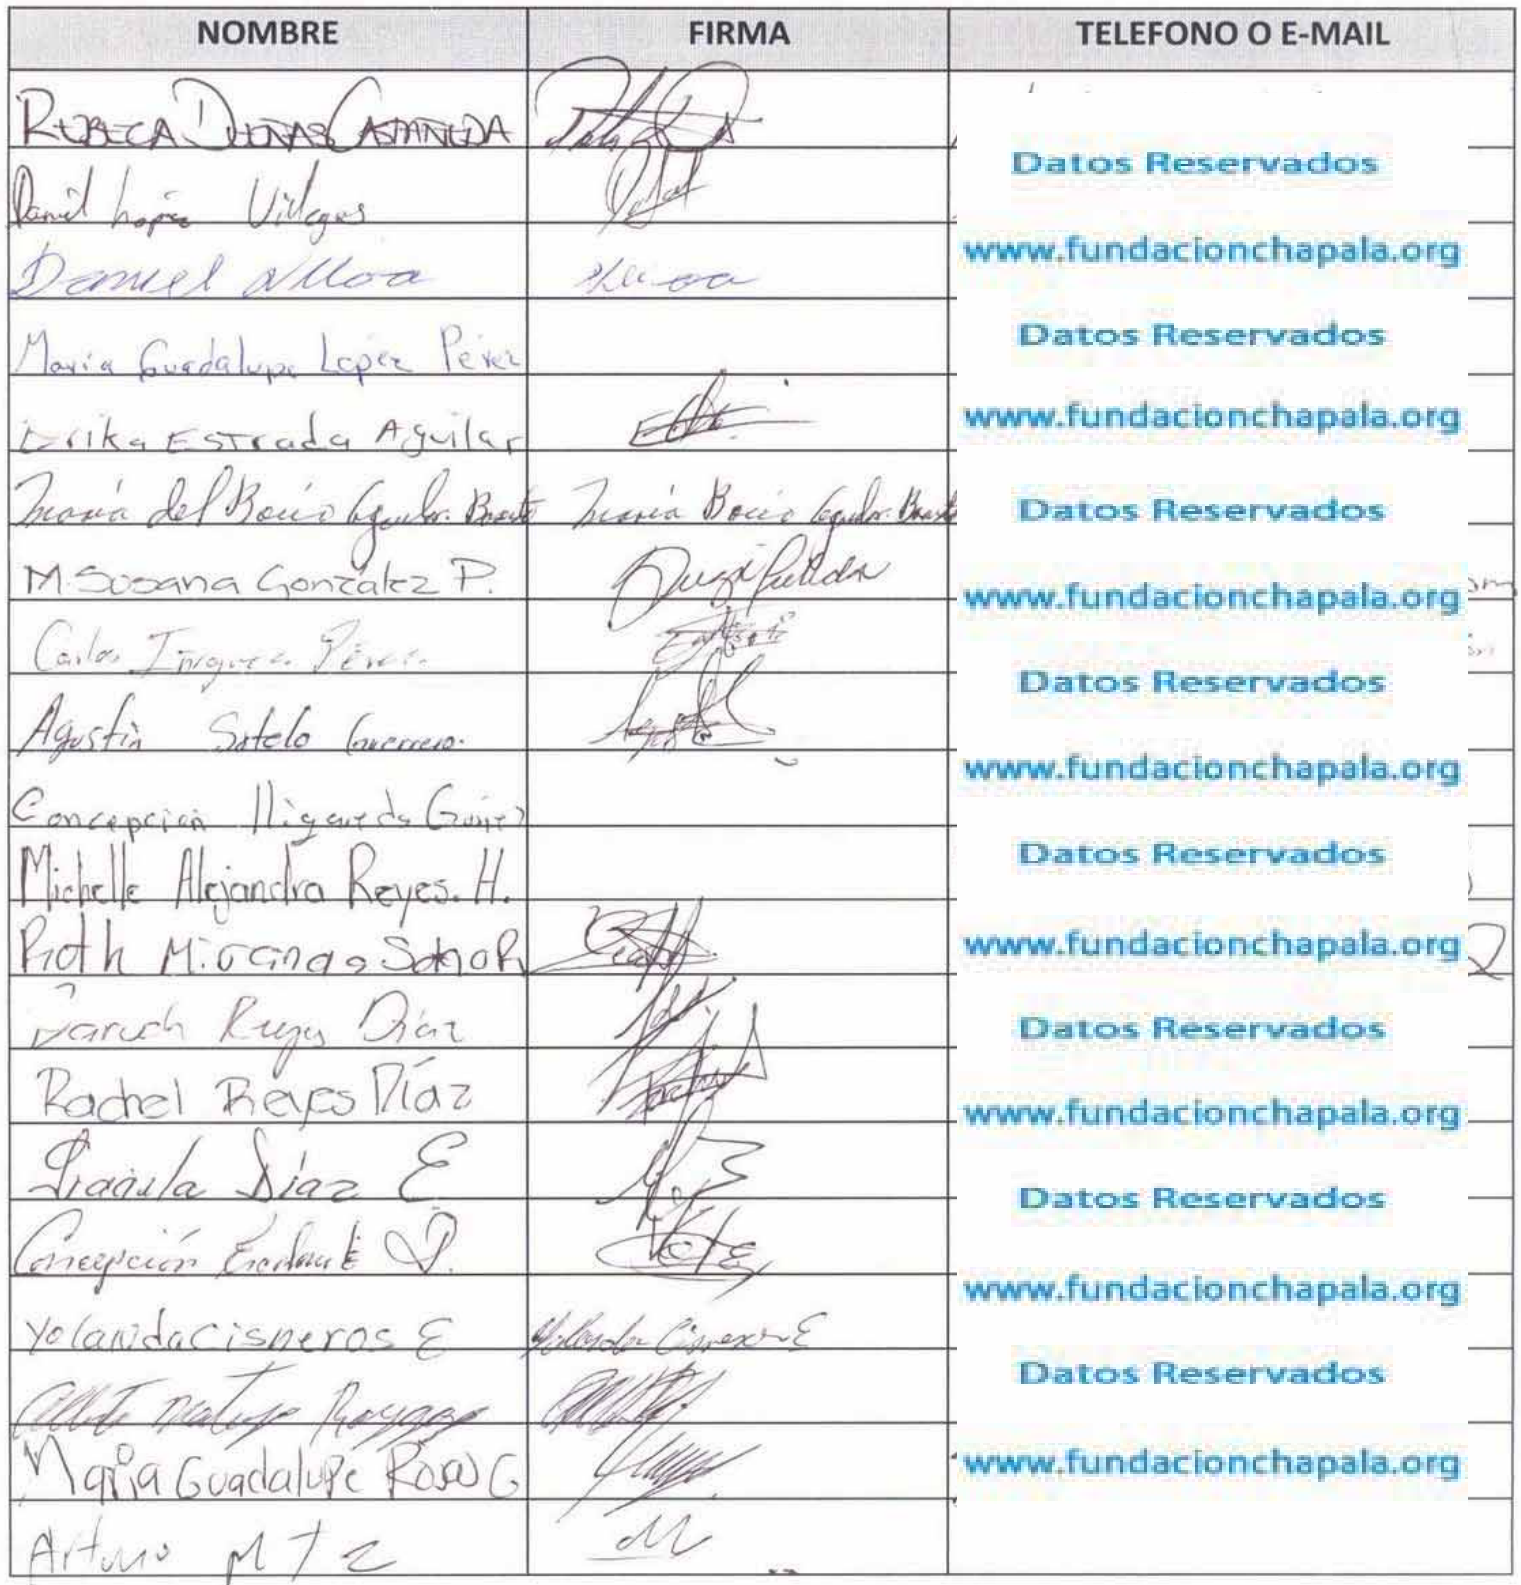 NOMBRE FIRMA TELEFONO O E-MAIL
REBECA DUEÑAS CASTAÑEDA
Datos Reservados
Daniel López Villegas
www.fundacionchapala.org
Daniel Ulloa Ulloa
Maria Guadalupe Lopez Pérez
Datos Reservados
Erika Estrada Aguilar
www.fundacionchapala.org
María del Rocío Aguilar María Rocío Aguilar
Datos Reservados
M. Susana González P.
www.fundacionchapala.org
Carlos Iñiguez Pérez.
Datos Reservados
Agustín Sotelo Guerrero.
www.fundacionchapala.org
Concepción
Datos Reservados
Michelle Alejandra Reyes. H.
Ruth
www.fundacionchapala.org
Baruch Reyes Díaz
Datos Reservados
Rachel Reyes Díaz
www.fundacionchapala.org
Díaz E
Datos Reservados
Concepción Escalante D.
www.fundacionchapala.org
Yolanda Cisneros E Yolanda Cisneros E
Datos Reservados
Maria Guadalupe Rosas G
www.fundacionchapala.org
Arturo MTZ